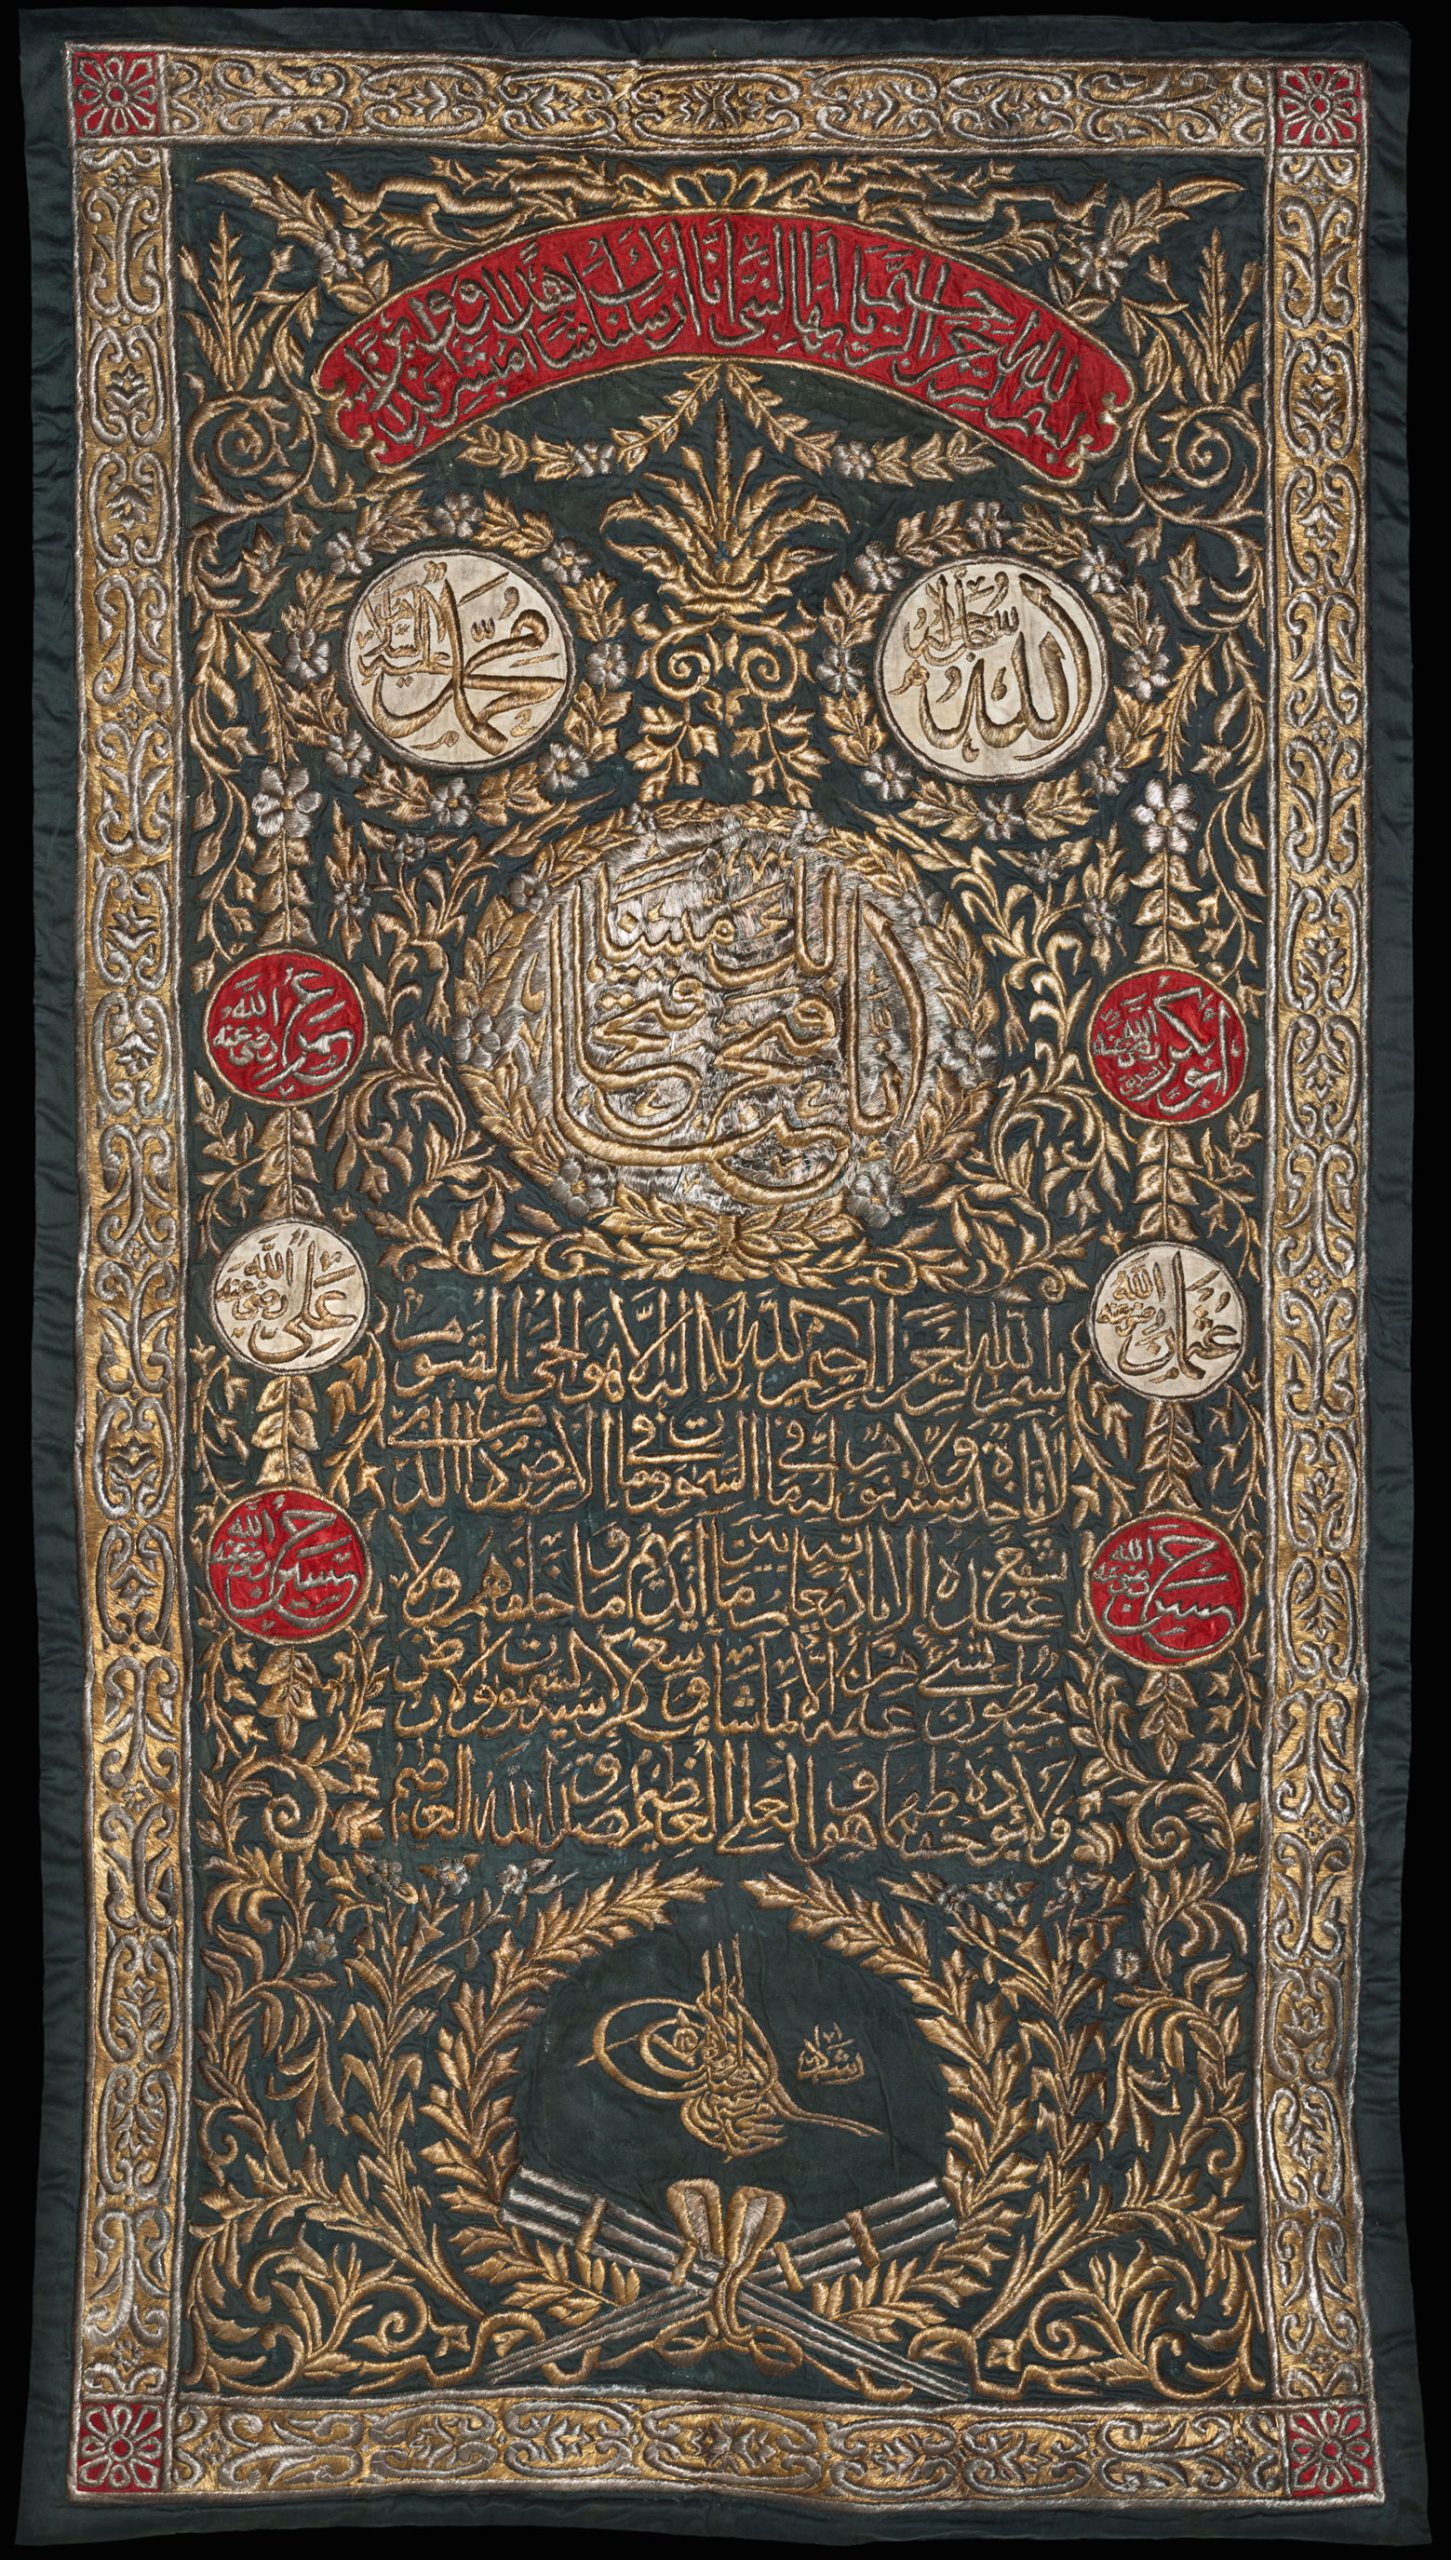 بسم الله الرحمن الرحيم يا ايها النبى انا ارسلناك شاهدا ومبشرا ونذيرا
الله
محمد عليه السلام
انا فتحنا لك فتحا مبينا
ابو بكر رضى الله عنه
عمر رضى الله عنه
عثمان رضى الله عنه
على رضى الله عنه
حسن رضى الله عنه
حسين رضى الله عنه
بسم الله الرحمن الرحيم الله لا اله الا هو الحى القيوم
لا تاخذه سنة ولا نوم له ما فى السموات وما فى الارض من ذا الذى
يشفع عنده الا باذنه يعلم ما بين ايديهم وما خلفهم ولا
يحيطون بشئ من علمه الا بما شاء وسع كرسيه السموات والارض
ولا يؤده حفظهما وهو العلى العظيم صدق الله العظيم
رشاد